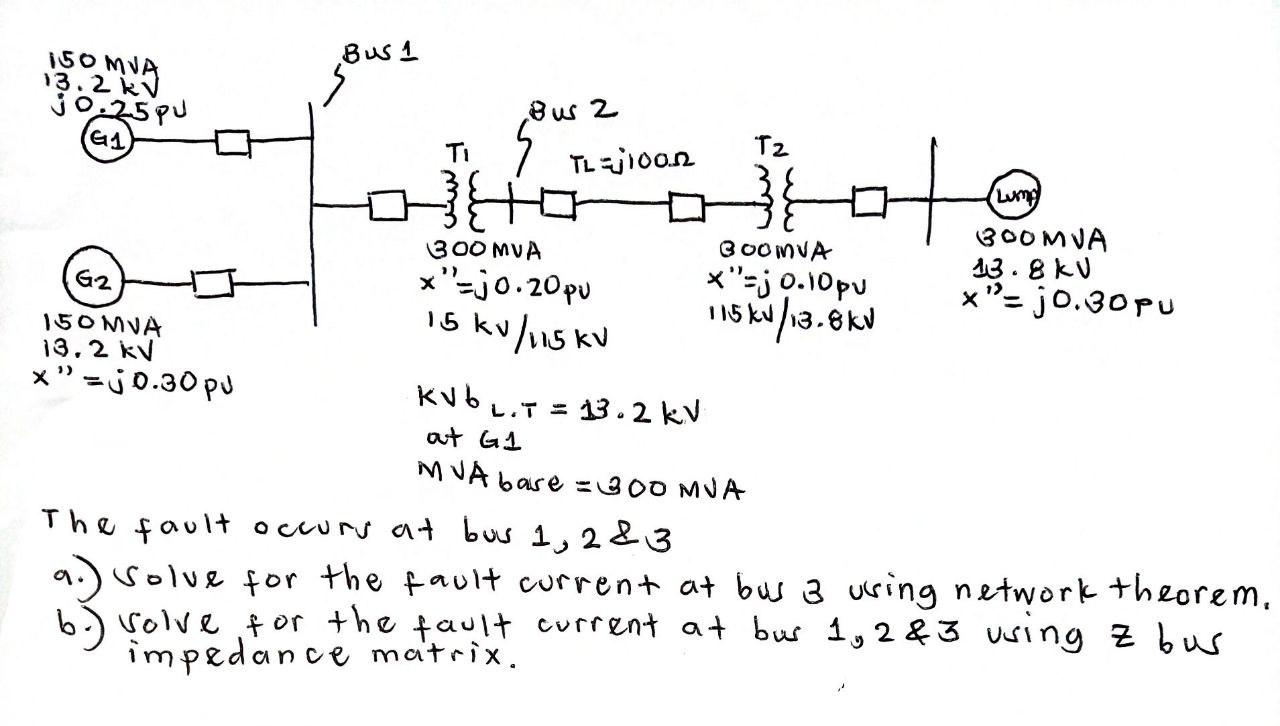 150 MVA
13.2 kV
j0.25pu
G1
Bus 1
Bus 2
T1
TL=j100Ω
T2
Lump
300 MVA
x"=j0.20pu
15 kv/115 kV
300MVA
x"=j0.10pu
115kV/13.8kV
300MVA
13.8 kV
x"= j0.30pu
G2
150MVA
13.2 kV
x"=j0.30pu
kVb L.T = 13.2 kV
at G1
MVA base = 300 MVA
The fault occurs at bus 1, 2 & 3
a.) solve for the fault current at bus 3 using network theorem.
b.) solve for the fault current at bus 1, 2 & 3 using z bus
impedance matrix.